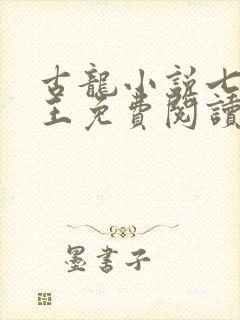 古龍小說七
王免費閱讀
墨書子